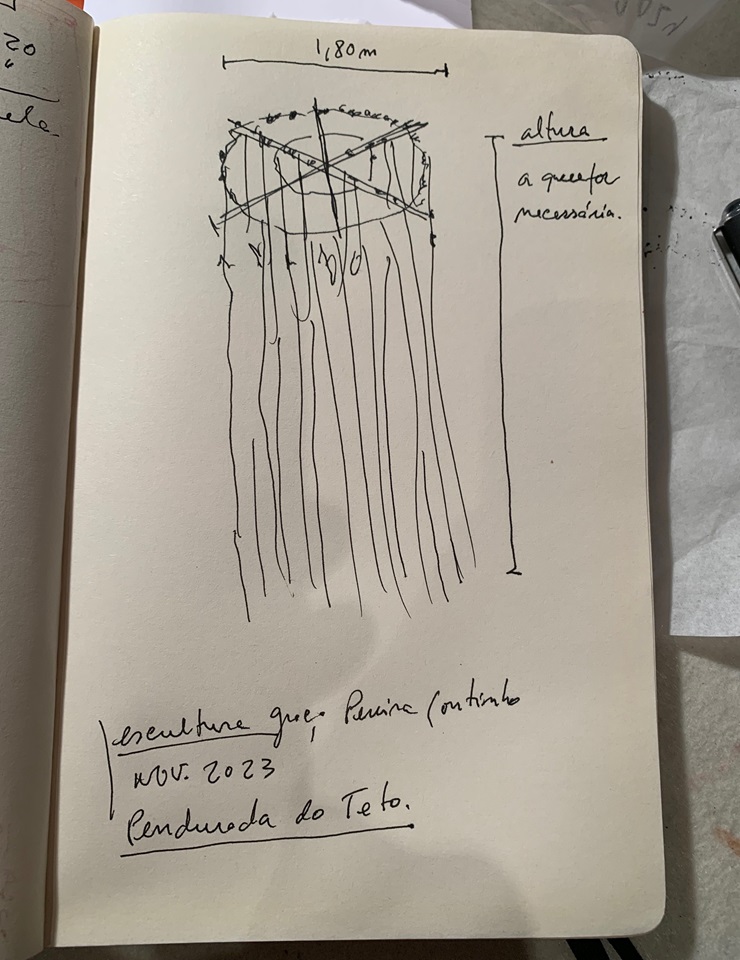 20
ela.
1,80m
altura
a que for
necessária.
escultura Pereira Coutinho
NOV. 2023
Pendurada do Teto.